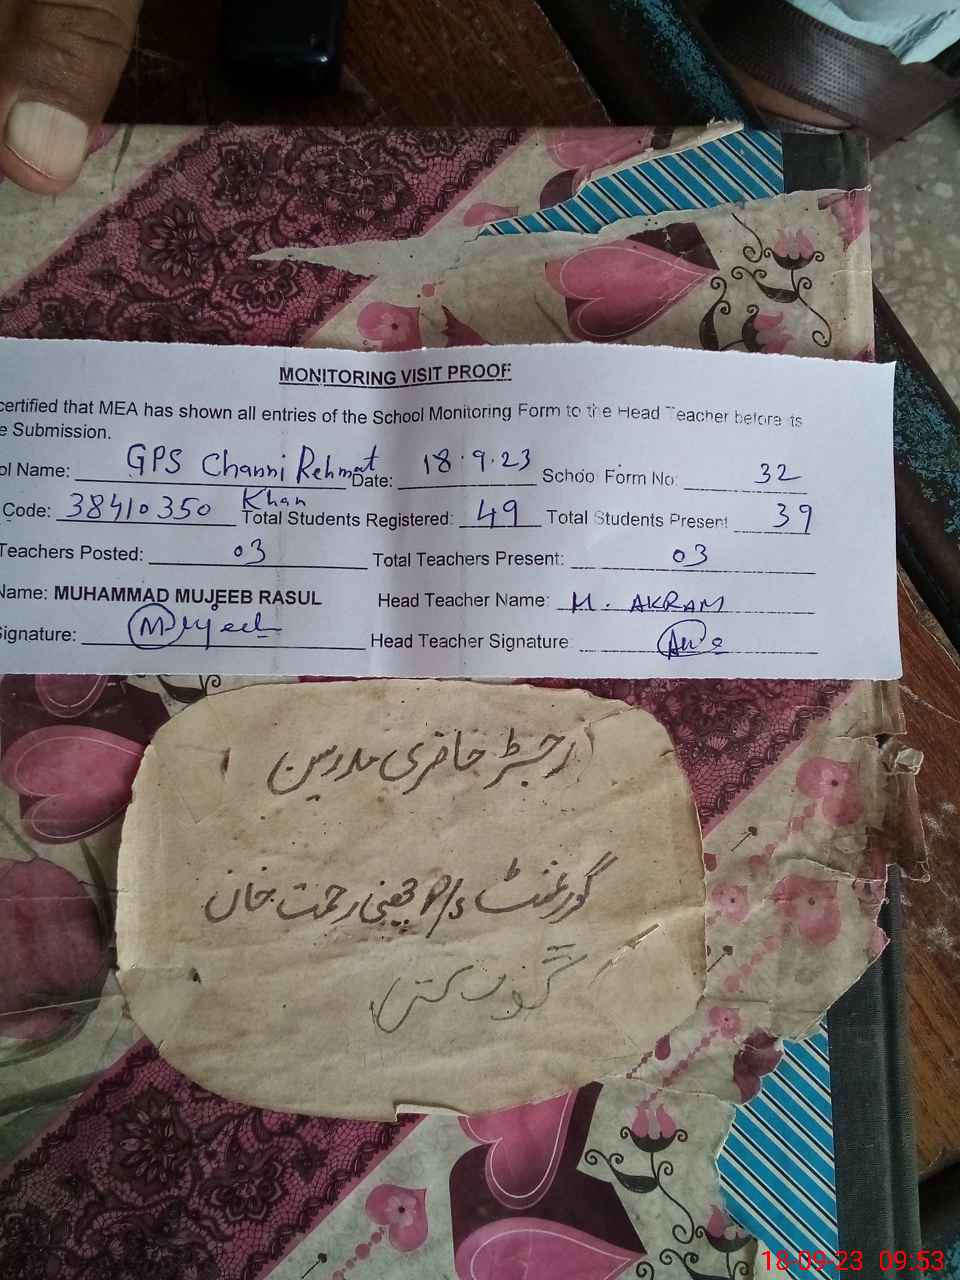 MONITORING VISIT PROOF
certified that MEA has shown all entries of the School Monitoring Form to the Head Teacher before its
e Submission.
ol Name: GPS Channi Rehmat Khan Date: 18.9.23 School Form No: 32
Code: 38410350 Total Students Registered: 49 Total Students Present 39
Teachers Posted: 03 Total Teachers Present: 03
Name: MUHAMMAD MUJEEB RASUL Head Teacher Name: M. AKRAM
Signature: Mujeeb Head Teacher Signature:
رجسٹر حاضری مدرسین
گورنمنٹ P/S چھنی رحمت خان
18-09-23 09:53